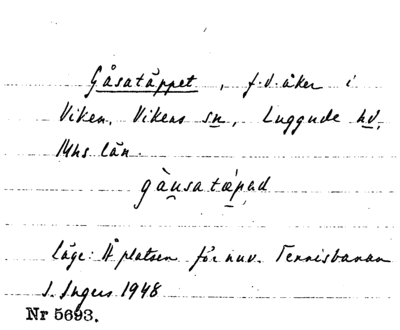 Gåsatäppet, f.d. åker i
Viken, Vikens sn, Luggude hd,
Mhs län.
gàu̯satæ̀pəd
Läge: Å platsen för nuv. Tennisbanan
I. Ingers 1948
Nr 5693.